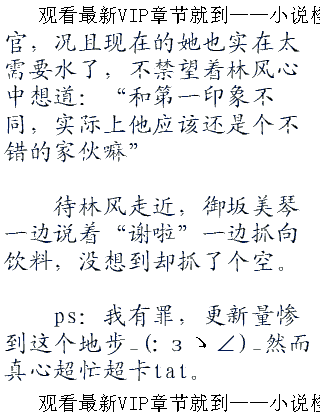 观看最新VIP章节就到——小说
官，况且现在的她也实在太
需要水了，不禁望着林风心
中想道：“和第一印象不
同，实际上他应该还是个不
错的家伙嘛”
待林风走近，御坂美琴
一边说着“谢啦”一边抓向
饮料，没想到却抓了个空。
ps：我有罪，更新量惨
到这个地步_(:з丶∠)_然而
真心超忙超卡tat。
观看最新VIP章节就到——小说